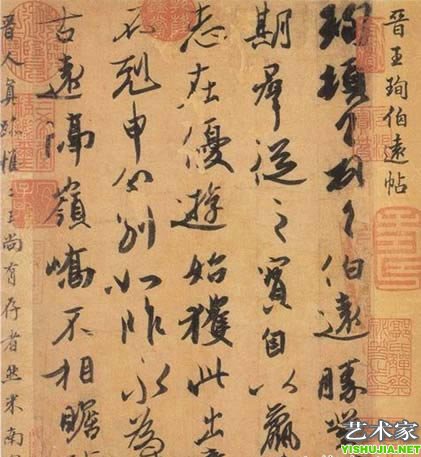 晉王珣伯遠帖
珣頓首頓首伯遠勝業
期羣從之寶自以羸
志在優遊始獲此出意
不剋申分別如昨永為
古遠隔嶺嶠不相瞻
晉人真跡惟二王尚有存者然米南
艺术家
YISHUJIA.NET